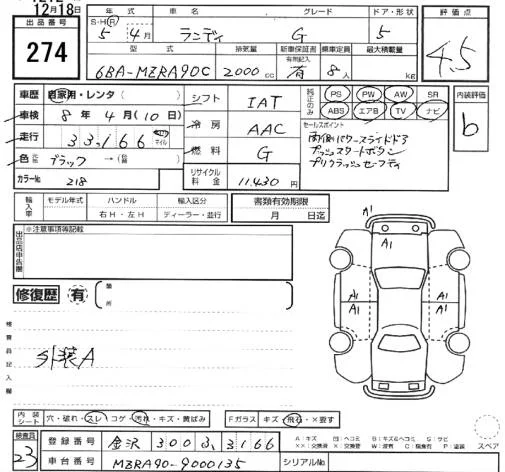 12月18日
出品番号
274
年式 車名 グレード ドア・形状
S・H・R 5年 4月 ランディ G 5
型式 排気量 新車保証書 乗車定員 最大積載量
有無記入
6BA-MZRA90C 2000cc 有 8人 kg
評価点
4.5
車歴 自家用・レンタ( )
車検 8年 4月(10日)
走行 33,166 km マイル
色 元色 ブラック → (色替 )
カラーNo. 218
シフト IAT
冷房 AAC
燃料 G
リサイクル料金 11.430円
純正のみ PS PW AW SR
ABS エアB TV ナビ
セールスポイント
両側パワースライドドア
プッシュスタートボタン
プリクラッシュセーフティ
内装評価
b
輸入車 モデル年式 ハンドル 輸入区分
右H・左H ディーラー・並行
書類有効期限
月 日迄
出品店申告欄
※注意事項等記載
修復歴 有 箇所
検査員記入欄
外装A
A1
A1
A1 A1
内装シート 穴・破れ・スレ・コゲ・汚れ・キズ・黄ばみ
Fガラス キズ・飛石・X要す
A:キズ U:ヘコミ B:キズ&ヘコミ S:サビ
XX:交換済 X:要交換 W:波有 C:腐食有 P:塗装
スペア
検査員
23
登録番号 金沢 300 ふ 3166
車台番号 MZRA90-9000135
シリアルNo.